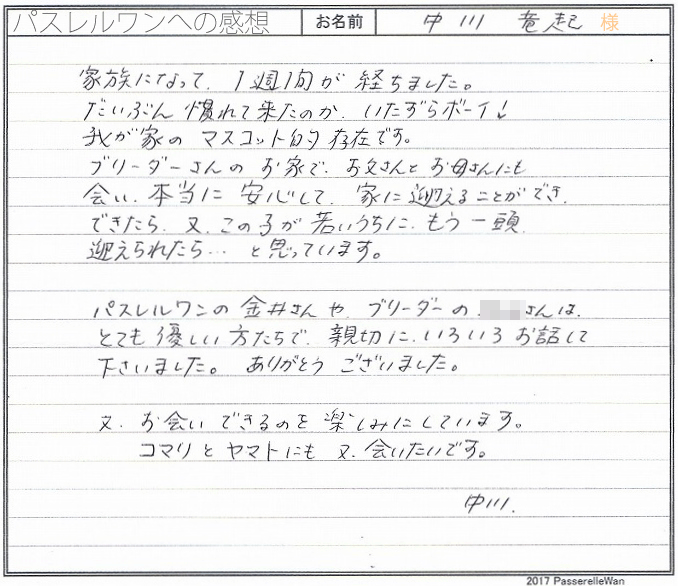 パスレルワンへの感想 お名前 中川 竜起 様
家族になって、1週間が 経ちました。
だいぶん 慣れて来たのか、いたずらボーイ!
我が家の マスコット的 存在です。
ブリーダーさんの お家で、お父さんと お母さんにも
会い、本当に 安心して、家に迎えることができ、
できたら、又、この子が 若いうちに、もう一頭、
迎えられたら… と思っています。
パスレルワンの 金井さんや、ブリーダーの さんは、
とても優しい方たちで、親切に、いろいろ お話して
下さいました。 ありがとう ございました。
又、お会いできるのを 楽しみにしています。
コマリとヤマトにも 又、会いたいです。
中川.
2017 PasserelleWan